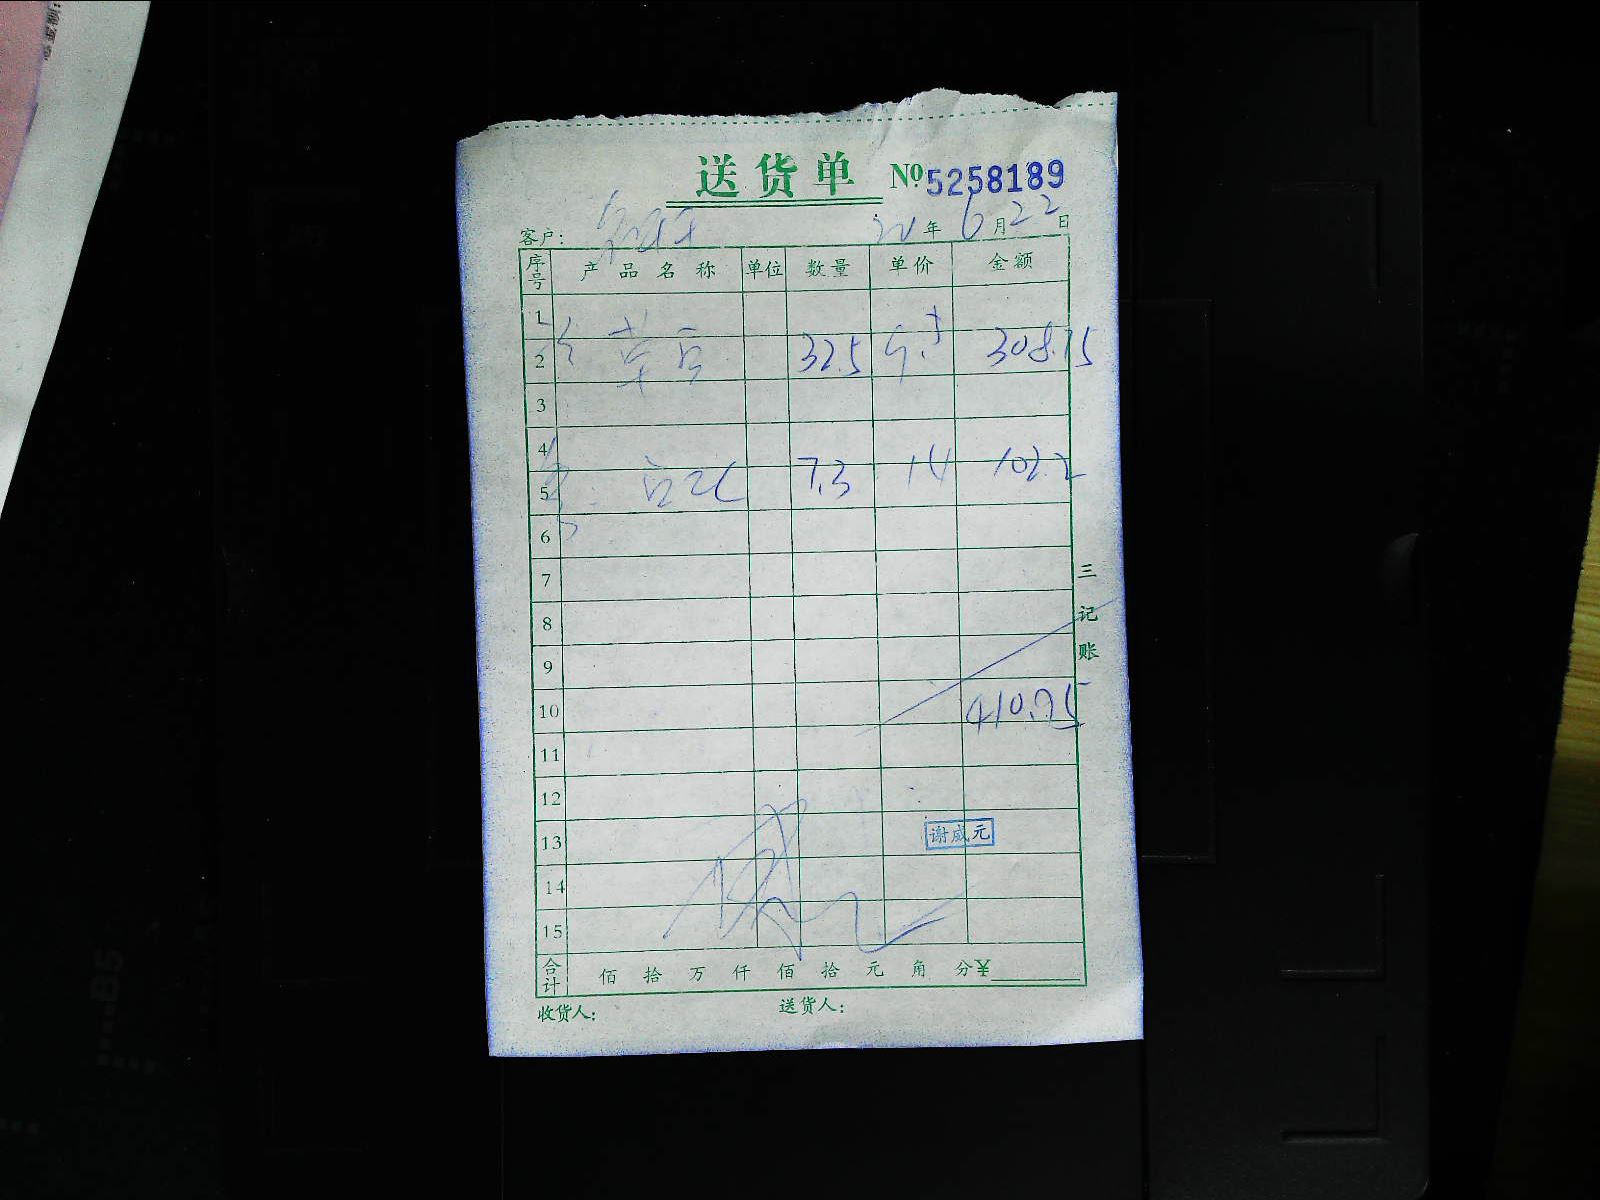 送货单 №5258189
客户： 20年6月22日
序号 产品名称 单位 数量 单价 金额
1
2 32.5 9.5 308.75
3
4
5 7.3 14 102.2
6
7
8
9
10 410.95
11
12
13 谢威元
14
15
合计 佰拾万仟佰拾元角分¥
收货人： 送货人：
三记账